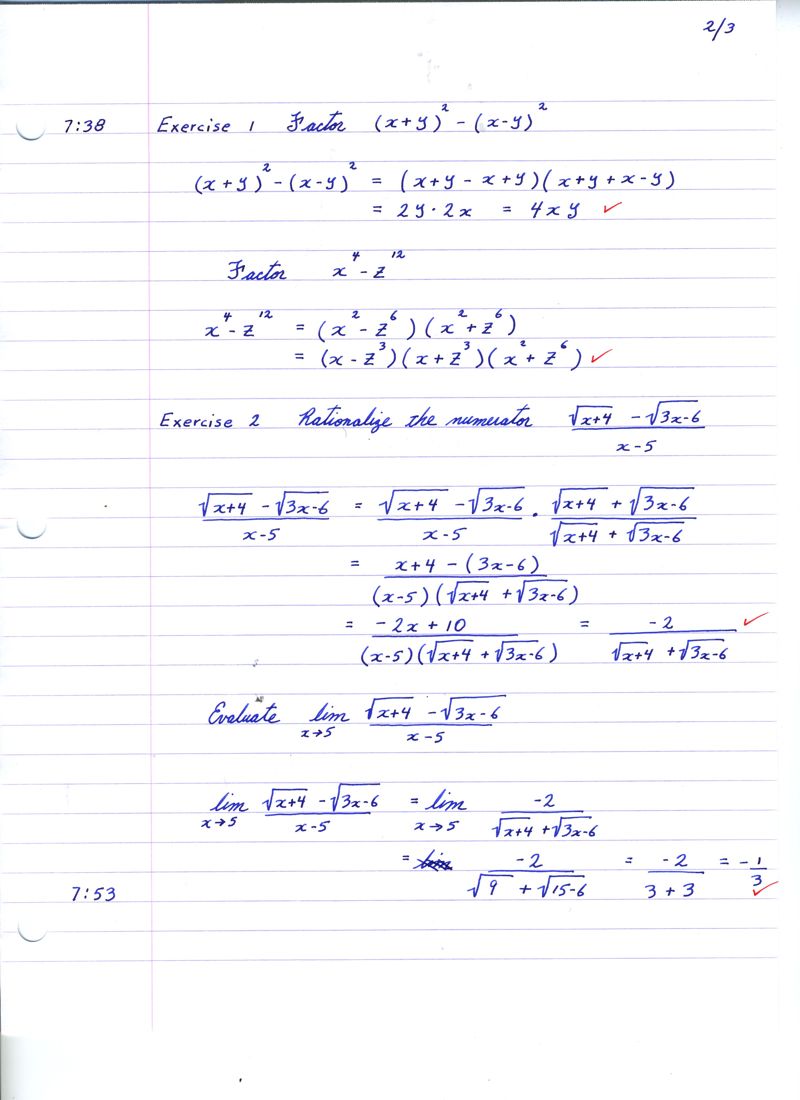 2/3
7:38 Exercise 1 Factor (x+y)² - (x-y)²
(x+y)² - (x-y)² = (x+y - x+y)(x+y + x-y)
= 2y·2x = 4xy ✓
Factor x⁴ - z¹²
x⁴ - z¹² = (x² - z⁶)(x² + z⁶)
= (x - z³)(x + z³)(x² + z⁶) ✓
Exercise 2 Rationalize the numerator (√(x+4) - √(3x-6))/(x-5)
(√(x+4) - √(3x-6))/(x-5) = (√(x+4) - √(3x-6))/(x-5) · (√(x+4) + √(3x-6))/(√(x+4) + √(3x-6))
= (x+4 - (3x-6))/((x-5)(√(x+4) + √(3x-6)))
= (-2x+10)/((x-5)(√(x+4) + √(3x-6))) = -2/(√(x+4) + √(3x-6)) ✓
Evaluate lim x→5 (√(x+4) - √(3x-6))/(x-5)
lim x→5 (√(x+4) - √(3x-6))/(x-5) = lim x→5 -2/(√(x+4) + √(3x-6))
= -2/(√9 + √(15-6)) = -2/(3+3) = -1/3 ✓
7:53